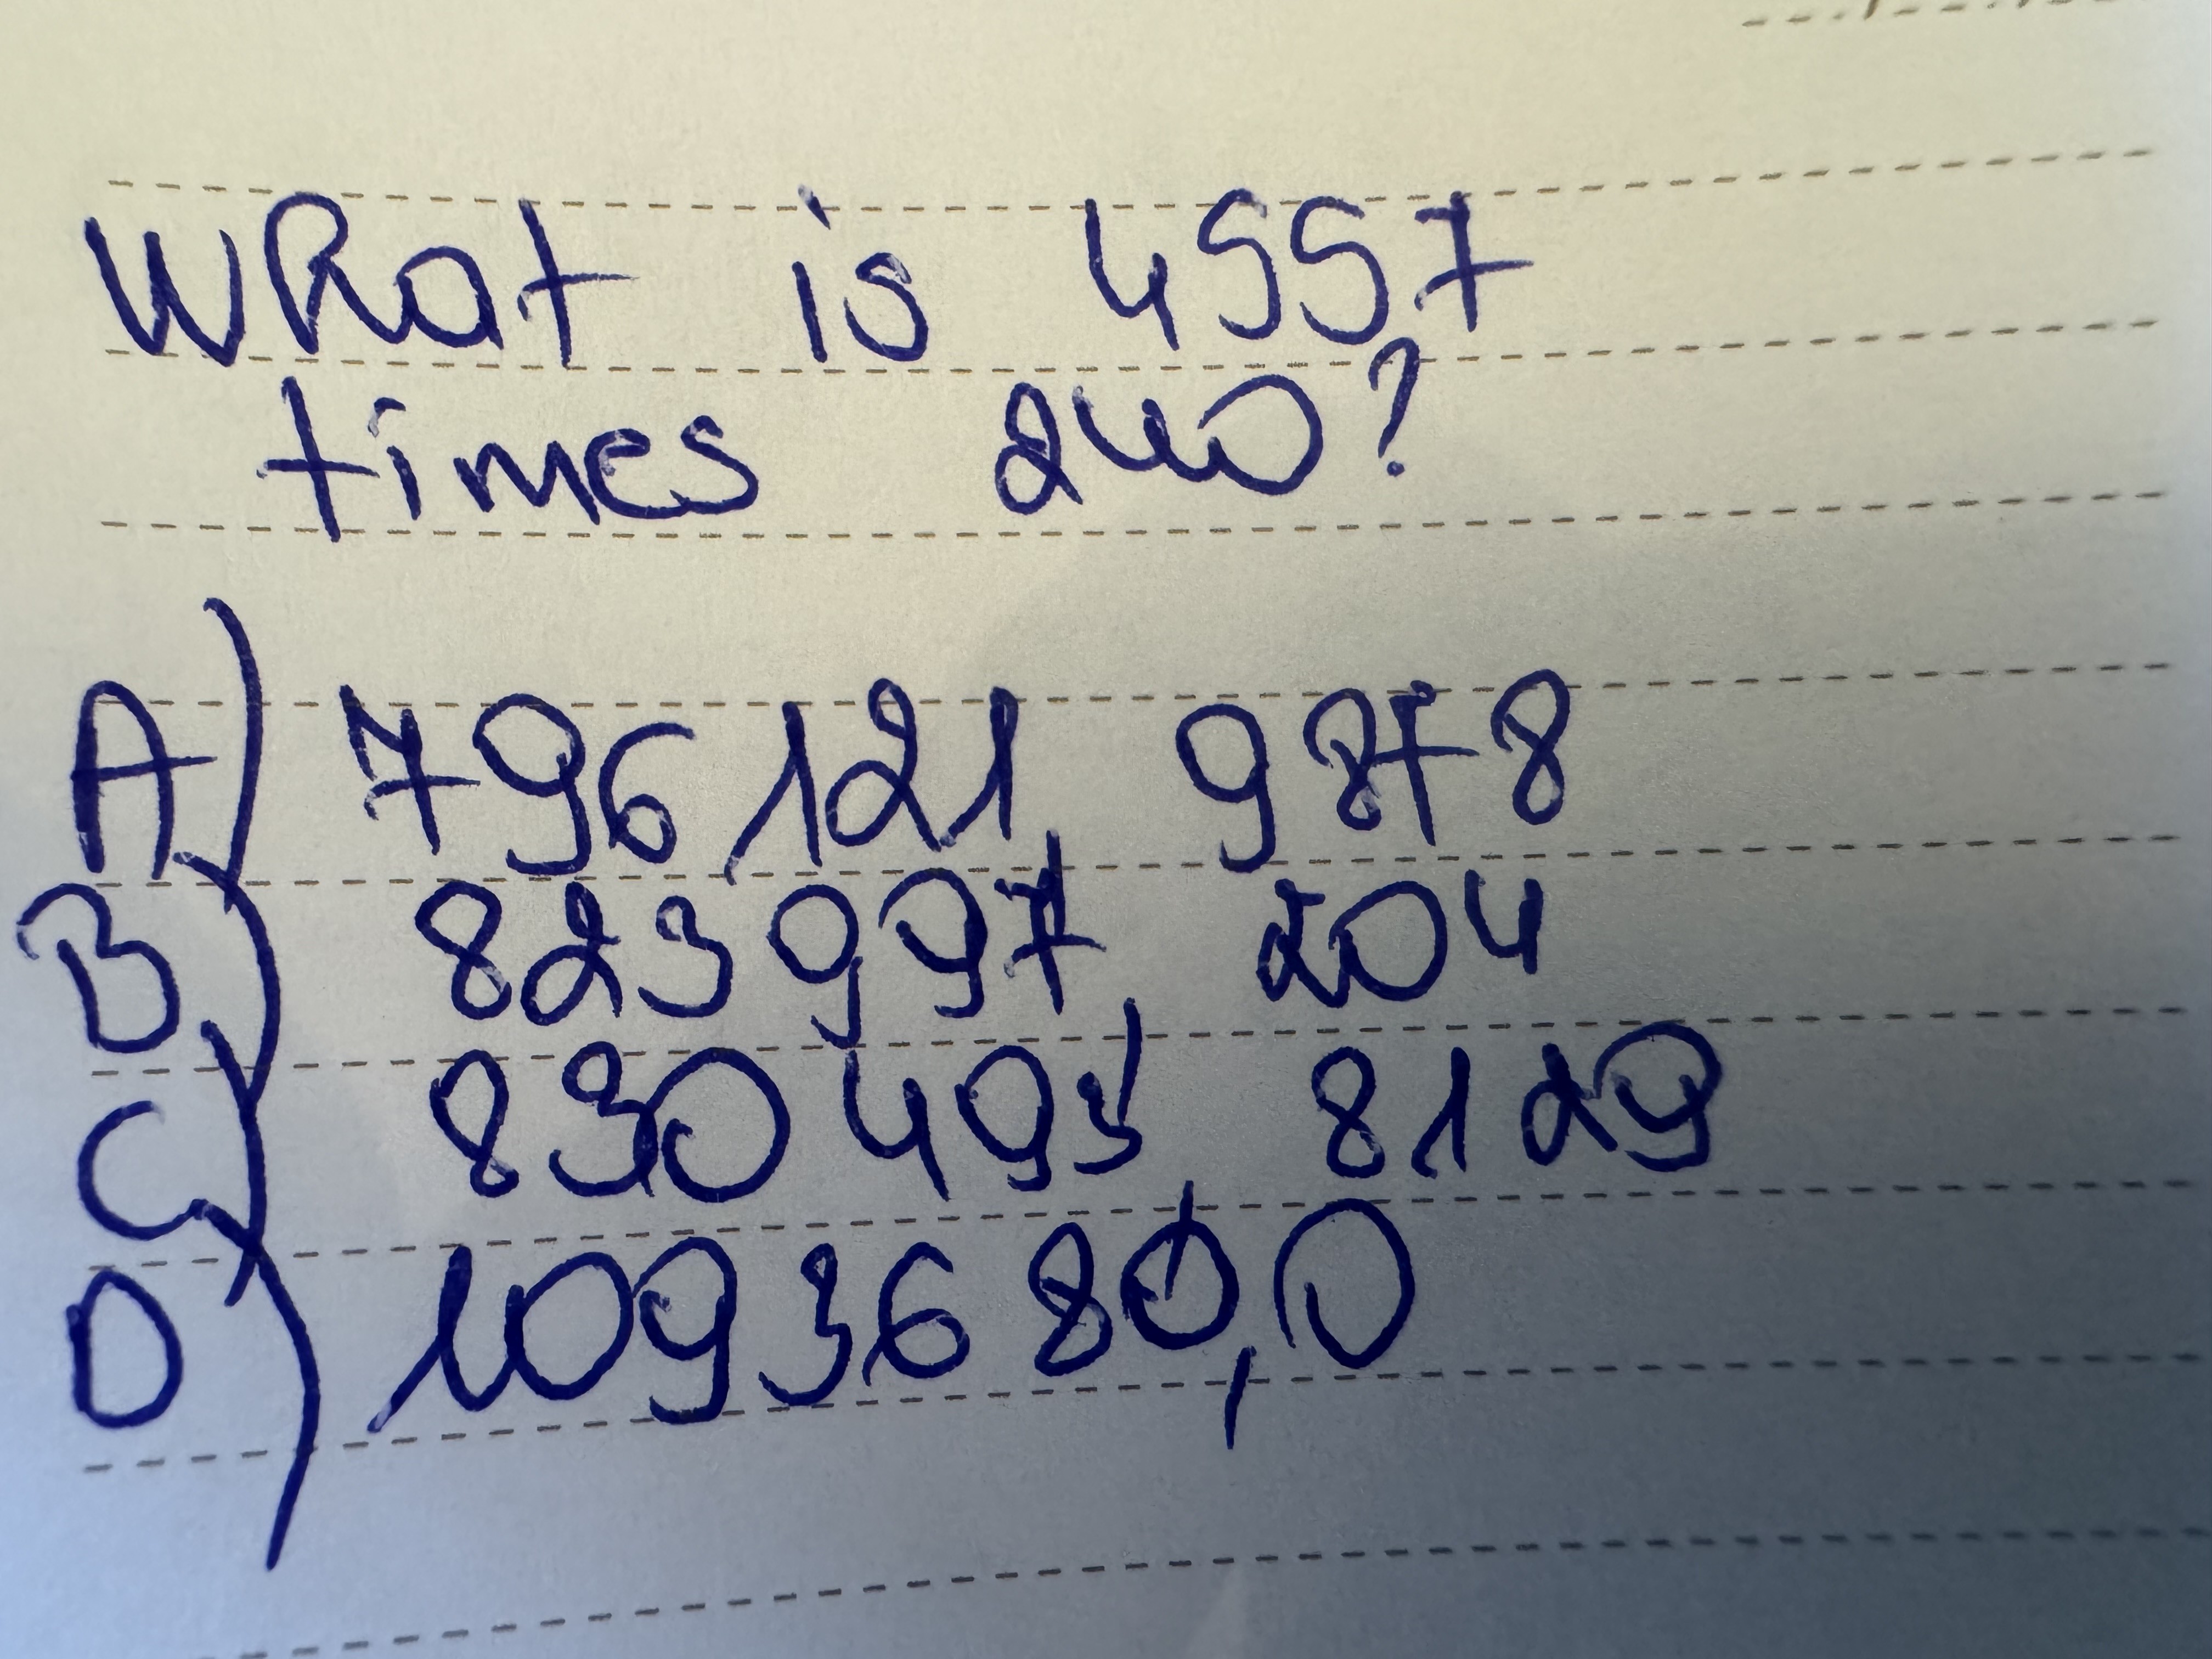 What is 4557
times 240?
A) 796121, 9878
B) 823997, 204
C) 830493, 8129
D) 1093680,0